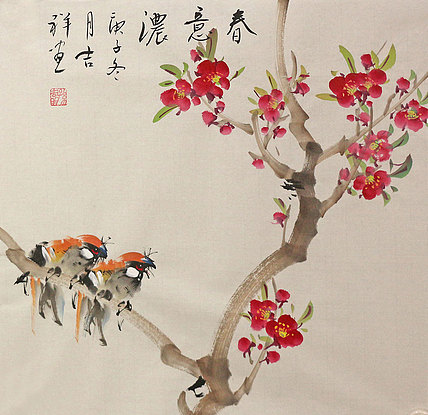 春意濃
庚子冬
月吉
祥畫